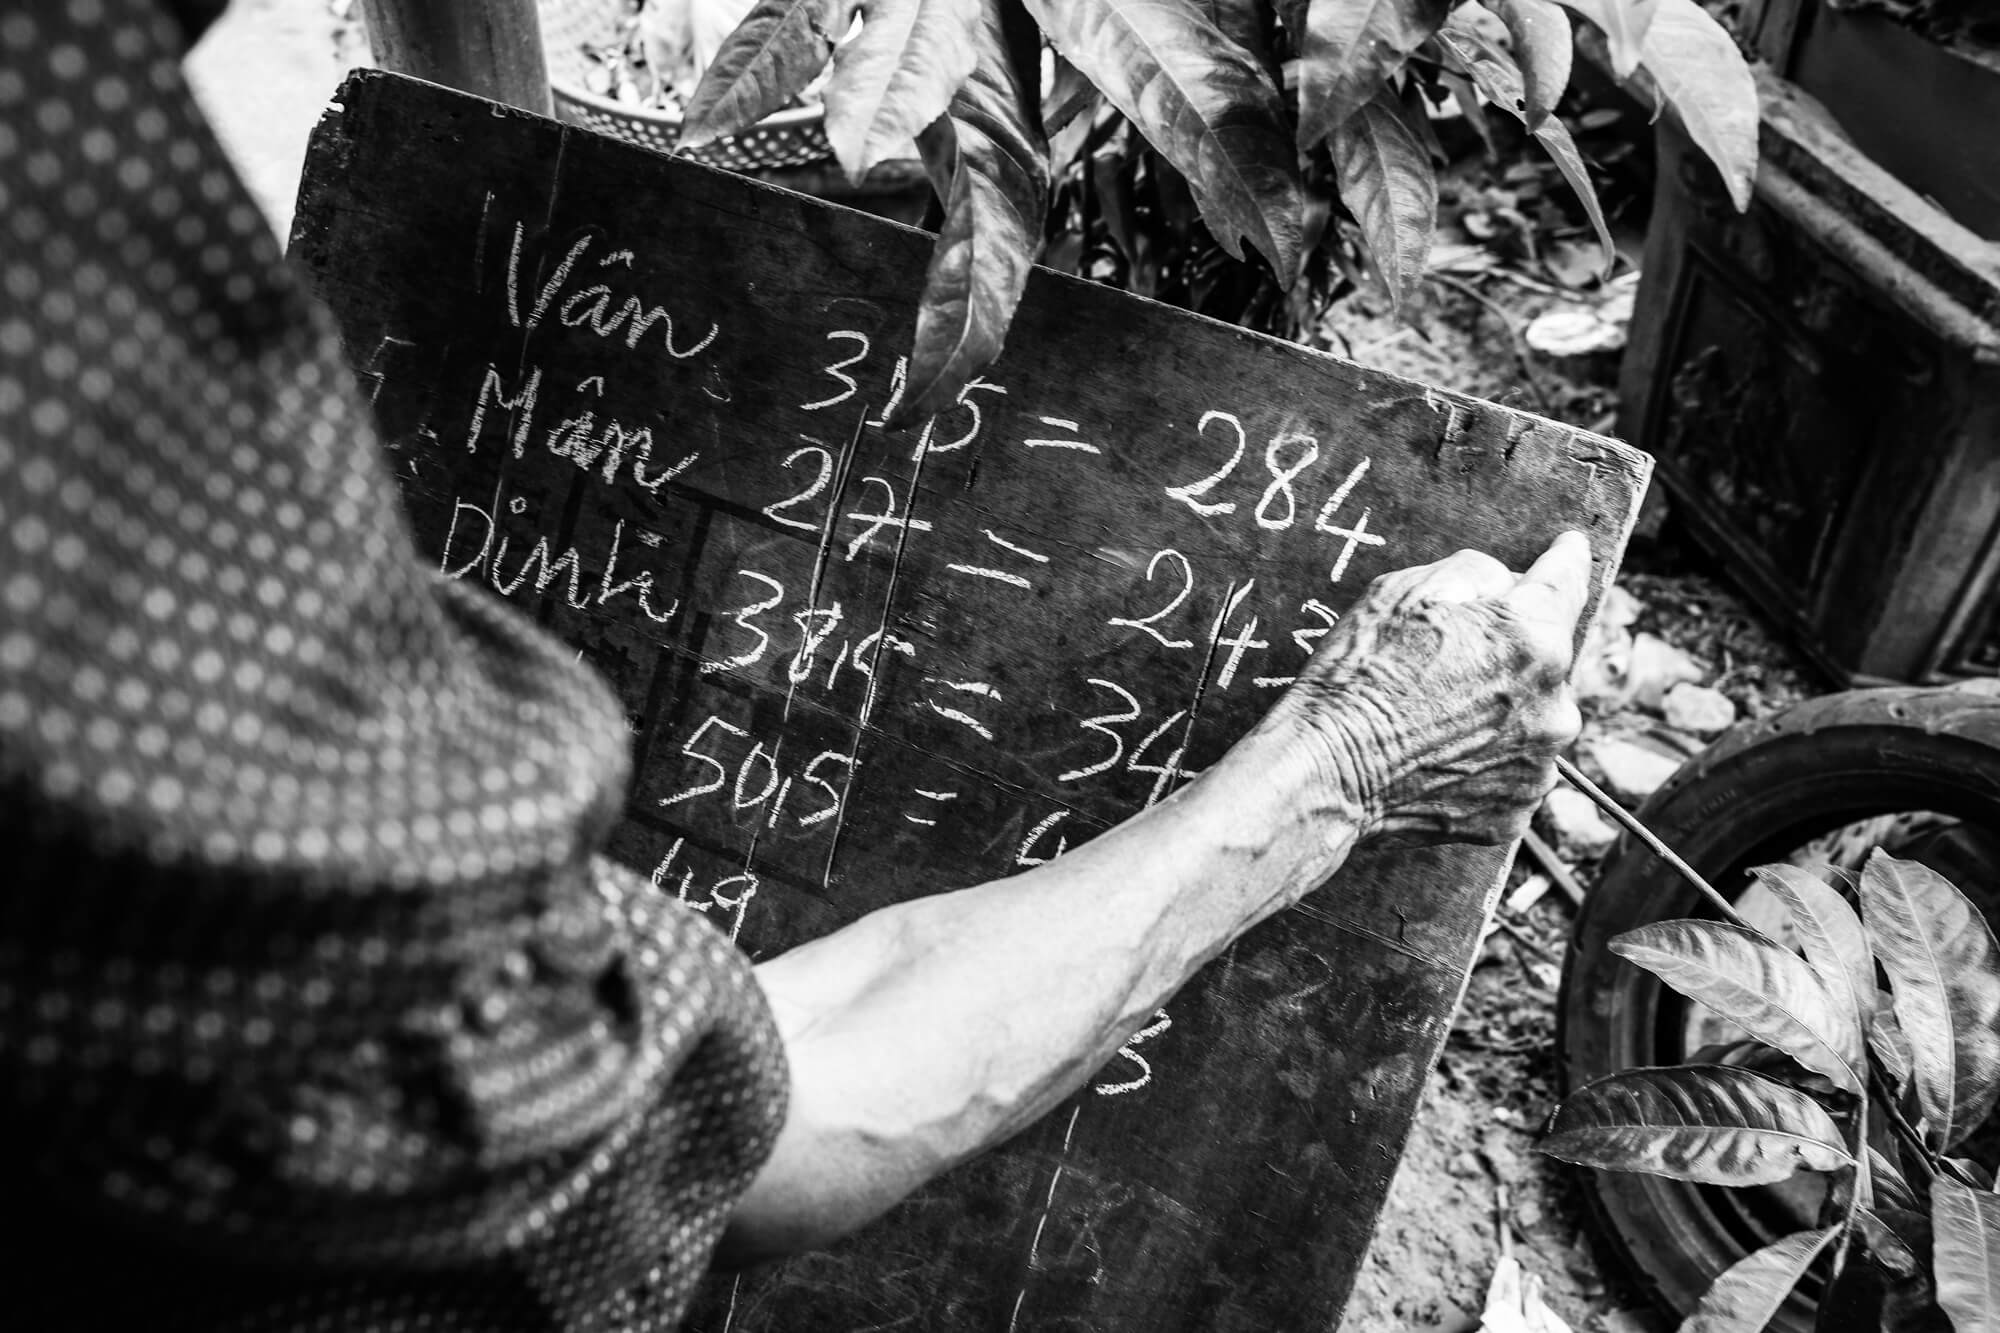 Vân 31,5 = 284
Mân 27 = 243
Dinh 38,5 = 34
50,5 = 4
49
3